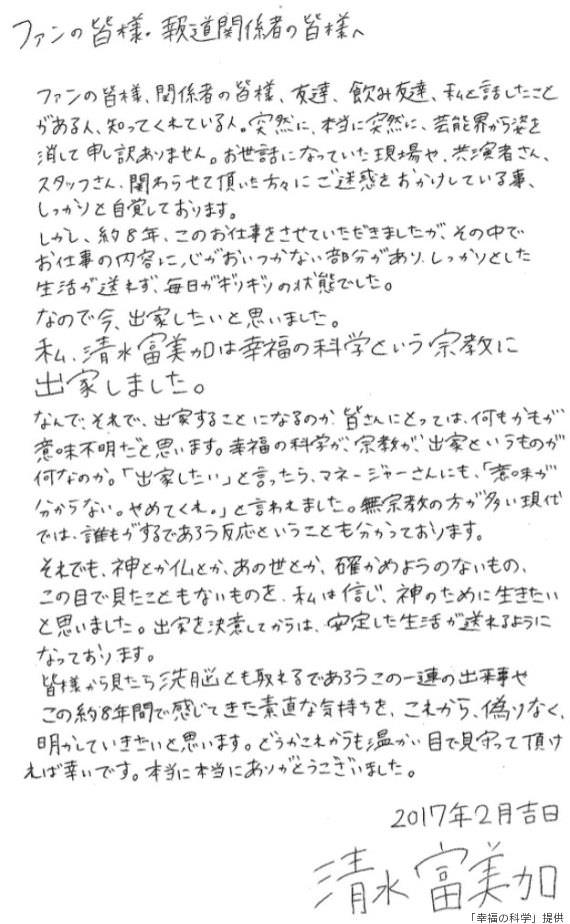 ファンの皆様・報道関係者の皆様へ
ファンの皆様、関係者の皆様、友達、飲み友達、私と話したこと
がある人、知ってくれている人。突然に、本当に突然に、芸能界から姿を
消して申し訳ありません。お世話になっていた現場や、共演者さん、
スタッフさん、関わらせて頂いた方々にご迷惑をおかけしている事、
しっかりと自覚しております。
しかし、約8年、このお仕事をさせていただきましたが、その中で
お仕事の内容に心がおいつかない部分があり、しっかりとした
生活が送れず、毎日がギリギリの状態でした。
なので今、出家したいと思いました。
私、清水富美加は幸福の科学という宗教に
出家しました。
なんで、それで、出家することになるのか、皆さんにとっては、何もかもが
意味不明だと思います。幸福の科学が、宗教が、出家というものが
何なのか。「出家したい」と言ったら、マネージャーさんにも、「意味が
分からない。やめてくれ。」と言われました。無宗教の方が多い現代
では、誰もがするであろう反応ということも分かっております。
それでも、神とか仏とか、あの世とか、確かめようのないもの、
この目で見たこともないものを、私は信じ、神のために生きたい
と思いました。出家を決意してからは、安定した生活が送れるように
なっております。
皆様から見たら洗脳とも取れるであろうこの一連の出来事や
この約8年間で感じてきた素直な気持ちを、これから、偽りなく、
明かしていきたいと思います。どうかこれからも温かい目で見守って頂け
れば幸いです。本当に本当にありがとうございました。
2017年2月吉日
清水富美加
「幸福の科学」提供